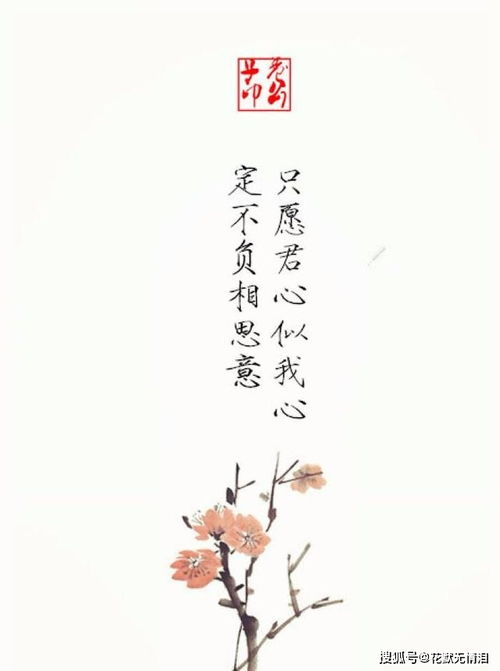 只愿君心似我心
定不负相思意
搜狐号@花默无情泪